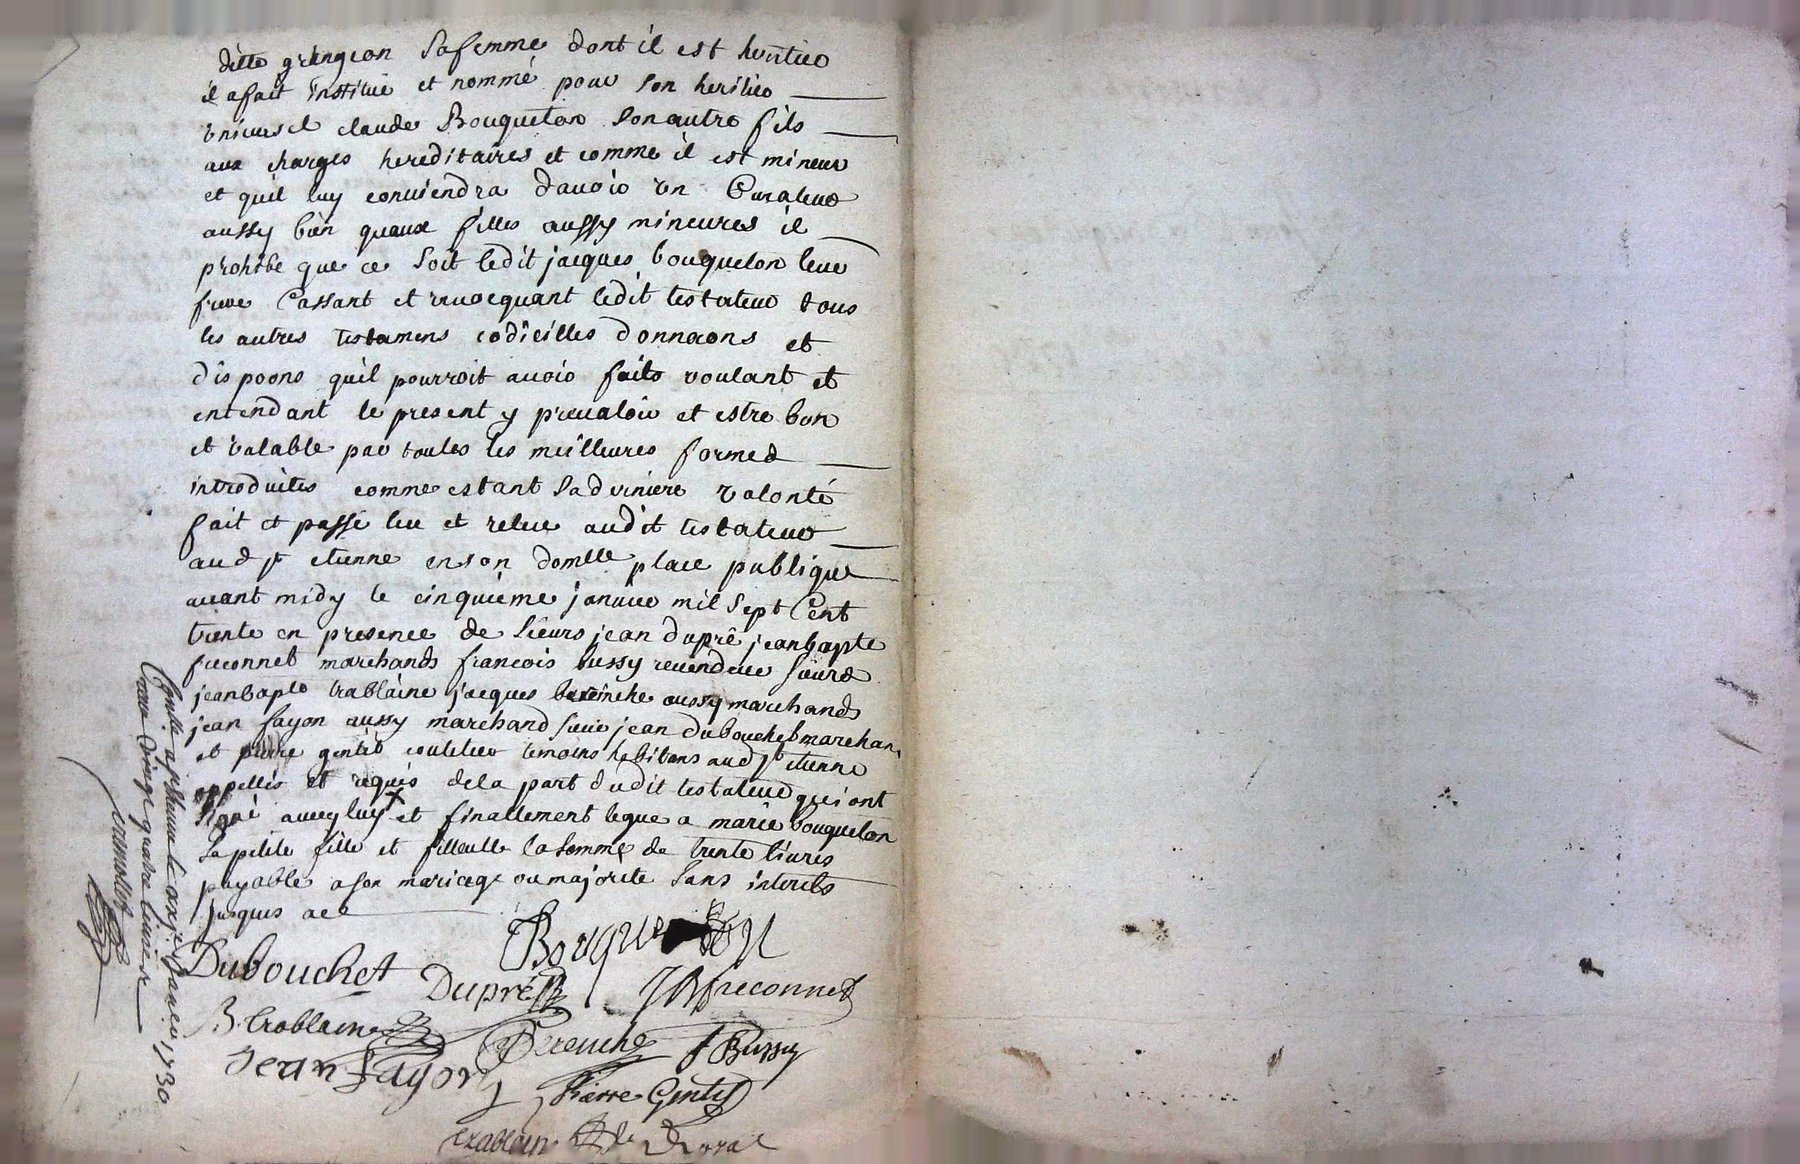 ditte grangeon Sa femme dont il est heritier
il a fait institué et nommé pour Son heritier
universel claude Bouqueton Son autre fils
aux charges hereditaires et comme il est mineur
et quil luy conviendra davoir un Curateur
aussy bien quaux filles aussy mineures il
prohibe que ce Soit ledit jacques bouqueton leur
frere Cassant et revocquant ledit testateur tous
les autres testamens codicilles donnaons et
dispoons quil pourroit avoir faits voulant et
entendant le present y prevaloir et estre bon
et valable par toutes les meilleures formes
introduites comme estant Sa derniere volonté
fait et passé leu et releu audit testateur
aud St etienne en son domlle place publique
avant midy le cinquieme janvier mil Sept Cent
trente en presence de Sieurs jean dupré jean bapte
freconnet marchands francois bussy revendeur Sieurs
jean bapte trablaine jacques berenche aussy marchands
jean fayon aussy marchand Sieur jean dubouchet marchand
et pierre gentil coutelier temoins habitans aud St etienne
appellés et requis de la part dudit testateur qui ont
Signé avecq luy et finallement legue a marie bouqueton
Sa petite fille et filleulle la Somme de trente livres
payable a Son mariage ou majorité Sans interets
jusques a ce
Bouqueton
Dubouchet
Dupré
JB freconnet
B. trablaine
Berenche
f Bussy
Jean Fayon
Pierre Gentil
trablaine
a St etienne le janvier 1730
vingt quatre livres